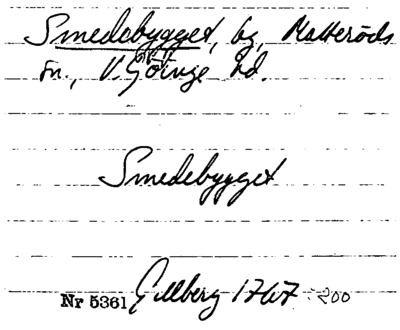 Smedebygget, bg, Matteröds
sn., V. Göinge hd.
Smedebygget
Nr 5361 Gillberg 1767 : 200